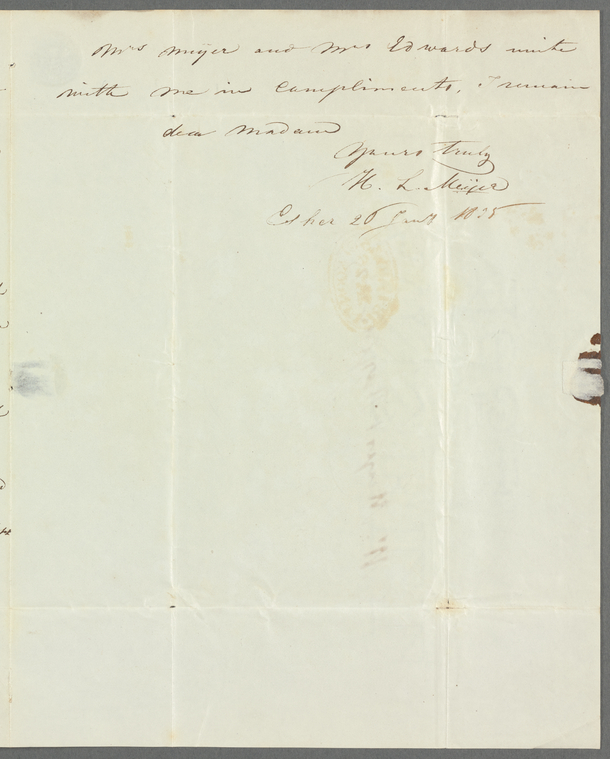 Mrs Meyer and Mrs Edwards unite
with me in compliments, I remain
dear Madam
Yours truly
H. L. Meyer
Esher 26 1835